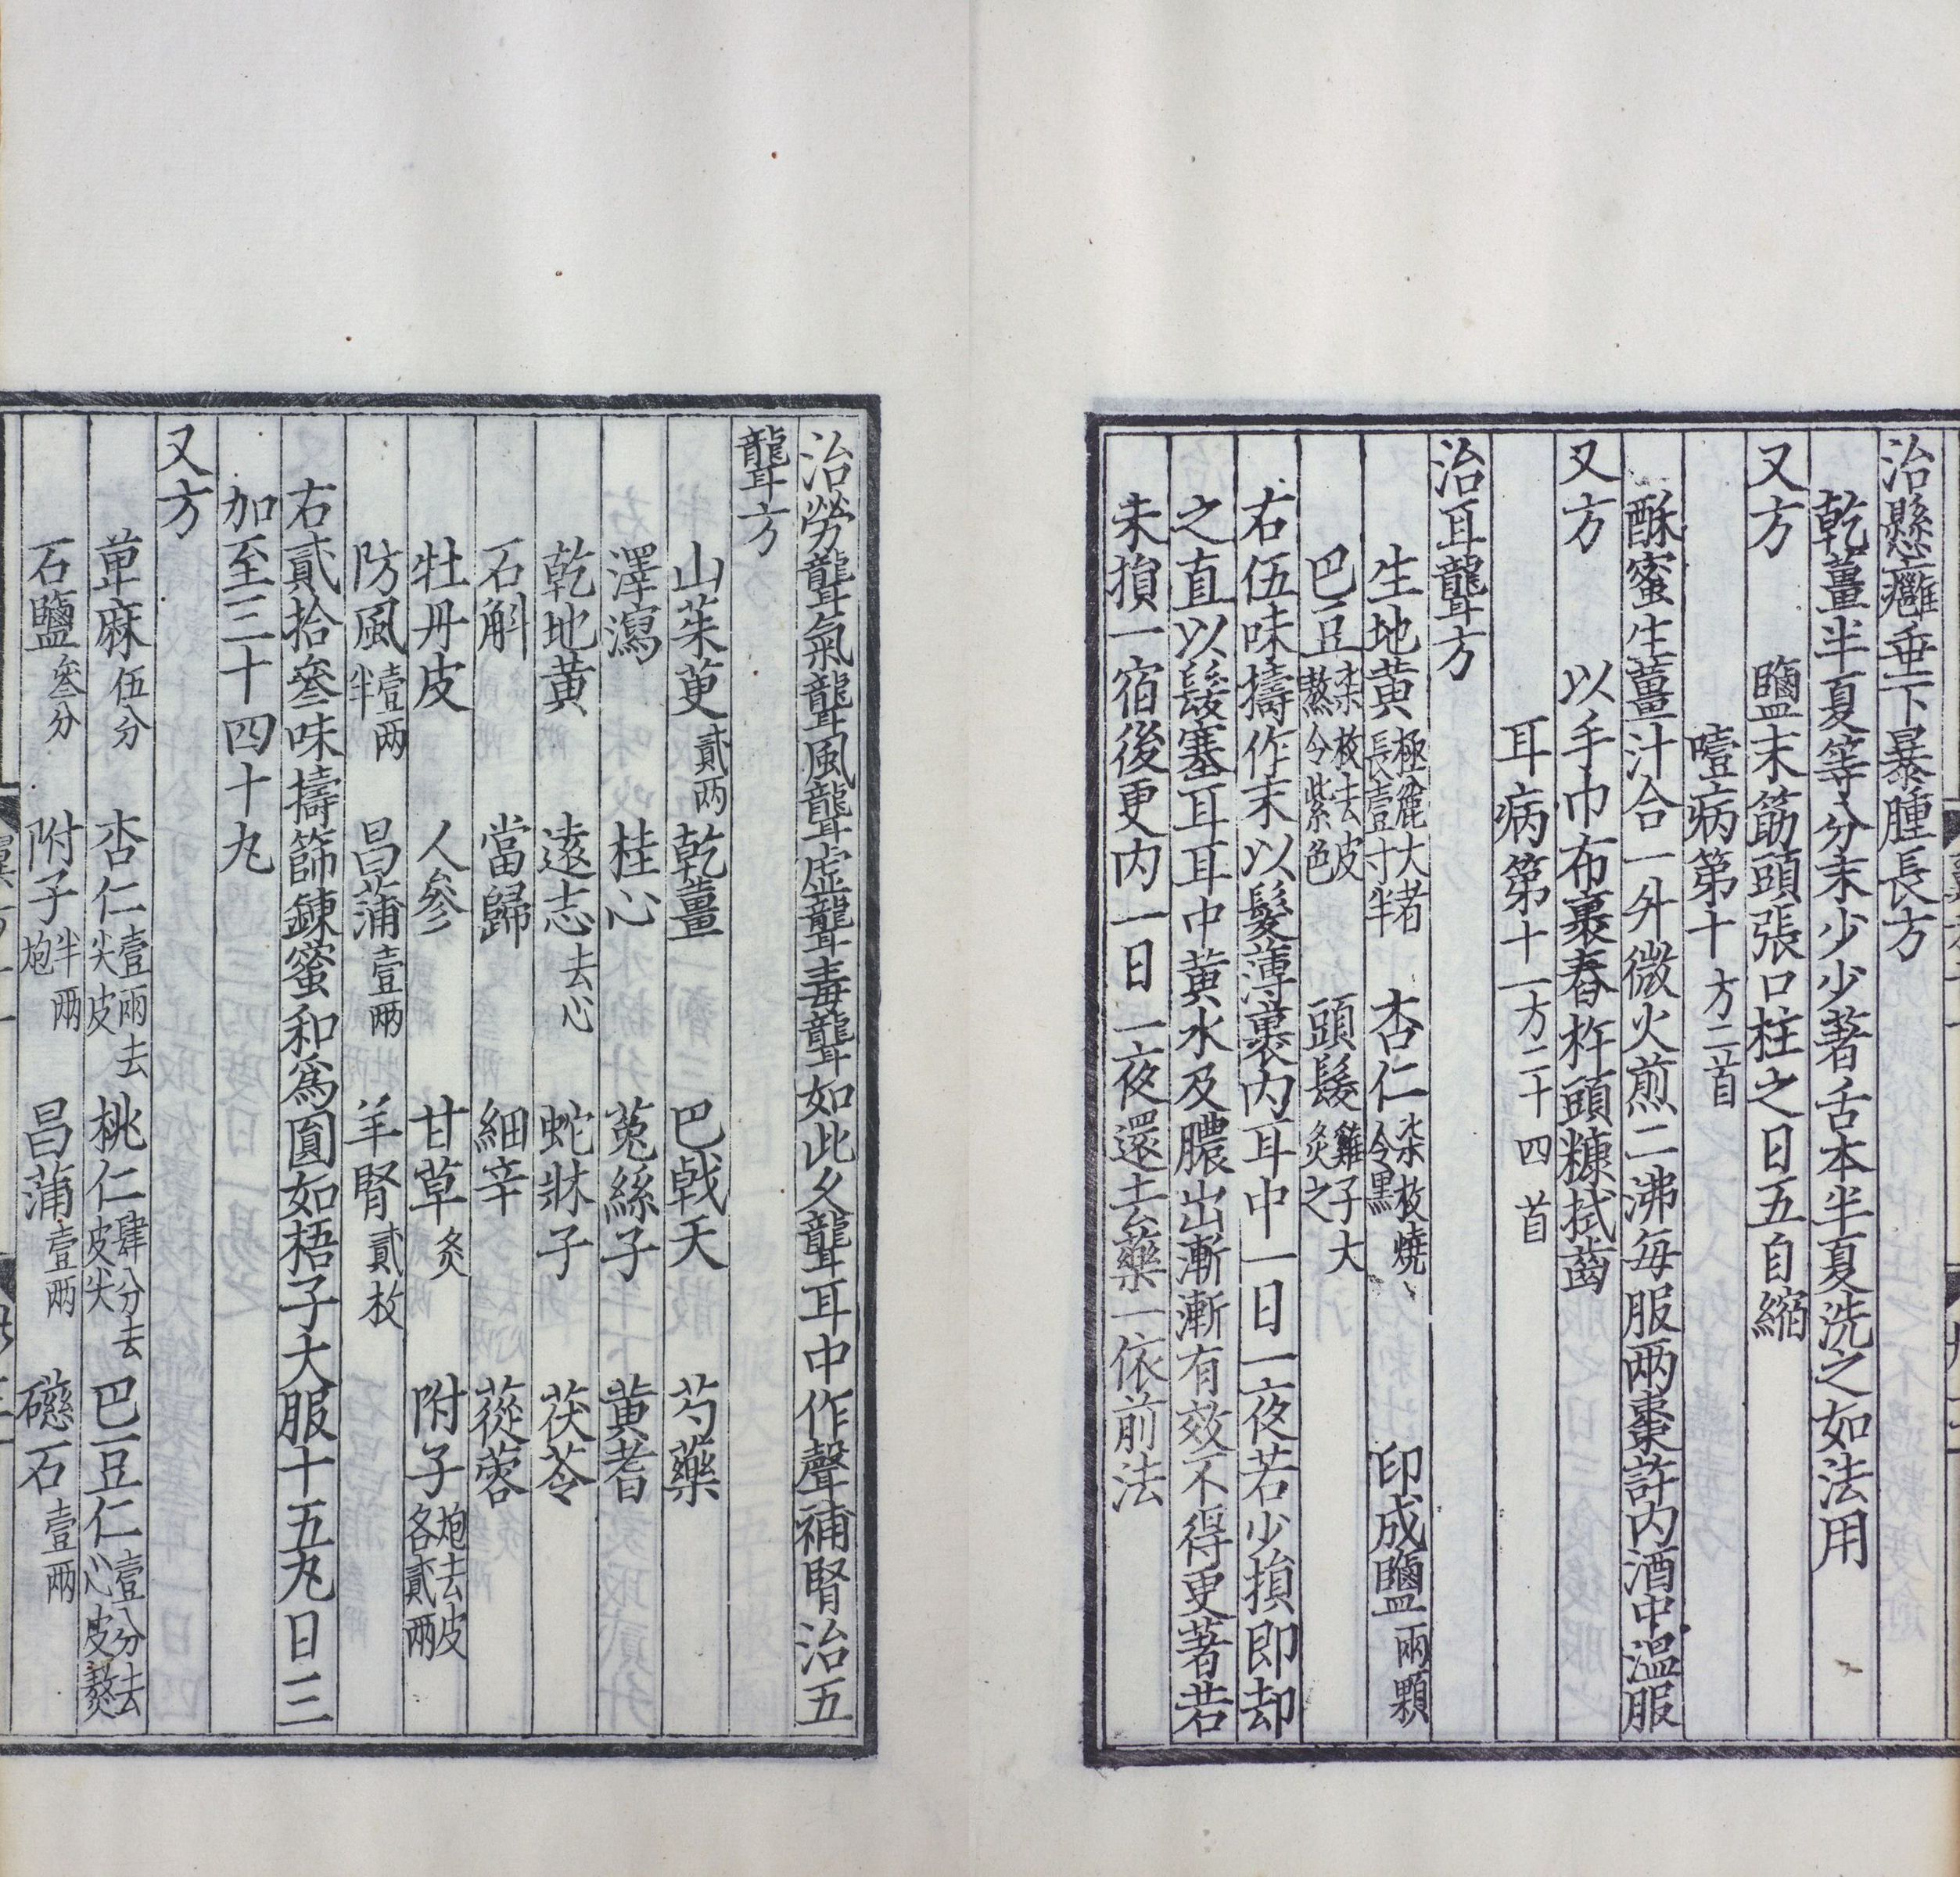 治懸癰垂下暴腫長方
乾薑半夏等分末少少著舌本半夏洗之如法用
又方　鹽末筯頭張口柱之日五自縮
噎病第十方二首
酥蜜生薑汁合一升微火煎二沸每服兩棗許内酒中溫服
又方　以手巾布裹舂杵頭糠拭齒
耳病第十一方二十四首
治耳聾方
生地黄極麄大者長壹寸半　杏仁柒枚燒令黑　印成鹽兩顆
巴豆柒枚去皮熬令紫色　頭髮雞子大灸之
右伍味擣作末以髮薄裹内耳中一日一夜若少損即却
之直以髮塞耳耳中黄水及膿出漸漸有效不得更著若
未損一宿後更内一日一夜還去藥一依前法
治勞聾氣聾風聾虛聾毒聾如此久聾耳中作聲補腎治五
聾方
山茱萸貳两　乾薑　巴戟天　芍藥
澤瀉　桂心　菟絲子　黄耆
乾地黄　遠志去心　蛇牀子　茯苓
石斛　當歸　細辛　蓯蓉
牡丹皮　人參　甘草灸　附子炮去皮各貳兩
防風壹两半　昌蒲壹兩　羊腎貳枚
右貳拾叄味擣篩鍊蜜和爲圓如梧子大服十五丸日三
加至三十四十丸
又方
萆麻伍分　杏仁壹兩去尖皮　桃仁肆分去皮尖　巴豆仁壹分去心皮熬
石鹽叄分　附子半兩炮　昌蒲壹两　礠石壹两